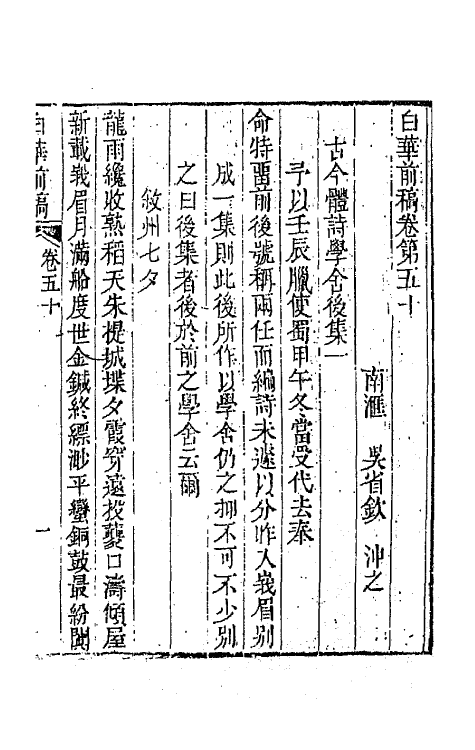 白華前稿卷第五十
南滙　吳省欽　沖之
古今體詩學舍後集一
予以壬辰臘使蜀甲午冬當受代去奉
命特畱前後號稱兩任而編詩未遽以分昨入峩眉别
成一集則此後所作以學舍仍之抑不可不少别
之曰後集者後於前之學舍云爾
敘州七夕
龍雨纔收熟稻天朱提城堞夕霞穿遠投夔口濤傾屋
新載峩眉月滿船度世金鍼終縹渺平蠻銅鼓最紛闐
白華前稿
卷五十
一